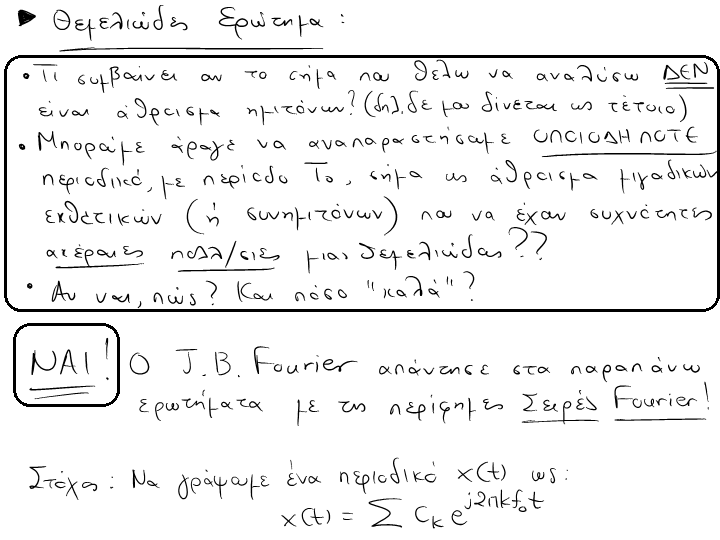 ► Θεμελιώδες Ερώτημα :
• Τι συμβαίνει αν το σήμα που θέλω να αναλύσω ΔΕΝ
είναι άθροισμα ημιτόνων? (δηλ. δε μου δίνεται ως τέτοιο)
• Μπορούμε άραγε να αναπαραστήσουμε ΟΠΟΙΟΔΗΠΟΤΕ
περιοδικό, με περίοδο Το, σήμα ως άθροισμα μιγαδικών
εκθετικών (ή συνημιτόνων) που να έχουν συχνότητες
ακέραιες πολλ/σιες μιας θεμελιώδους??
• Αν ναι, πώς? Και πόσο "καλά"?
ΝΑΙ! Ο J.B. Fourier απάντησε στα παραπάνω
ερωτήματα με τις περίφημες Σειρές Fourier!
Στόχος: Να γράψουμε ένα περιοδικό x(t) ως:
x(t) = Σ C_k e^{j2πkf_0t}